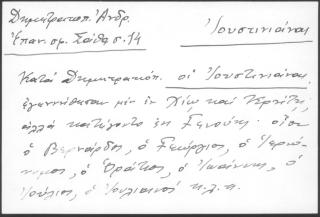 Δημητρακοπ. Ἀνδρ.
Ἐπαν. σμ. Σάθα σ. 14
Ἰουστινιάναι
Κατά Δημητρακόπ. οἱ Ἰουστινιάναι,
ἐγεννήθησαν μέν ἐν Χίῳ καί Κρήτῃ,
ἀλλά κατήγοντο ἐκ Γενούης· οἷον
ὁ Βερνάρδος, ὁ Γεώργιος, ὁ Ἱερώ-
νυμος, ὁ Ὁράτιος, ὁ Ἰωάννης, ὁ
Ἰούλιος, ὁ Ἰουλιανός κ.λ.π.